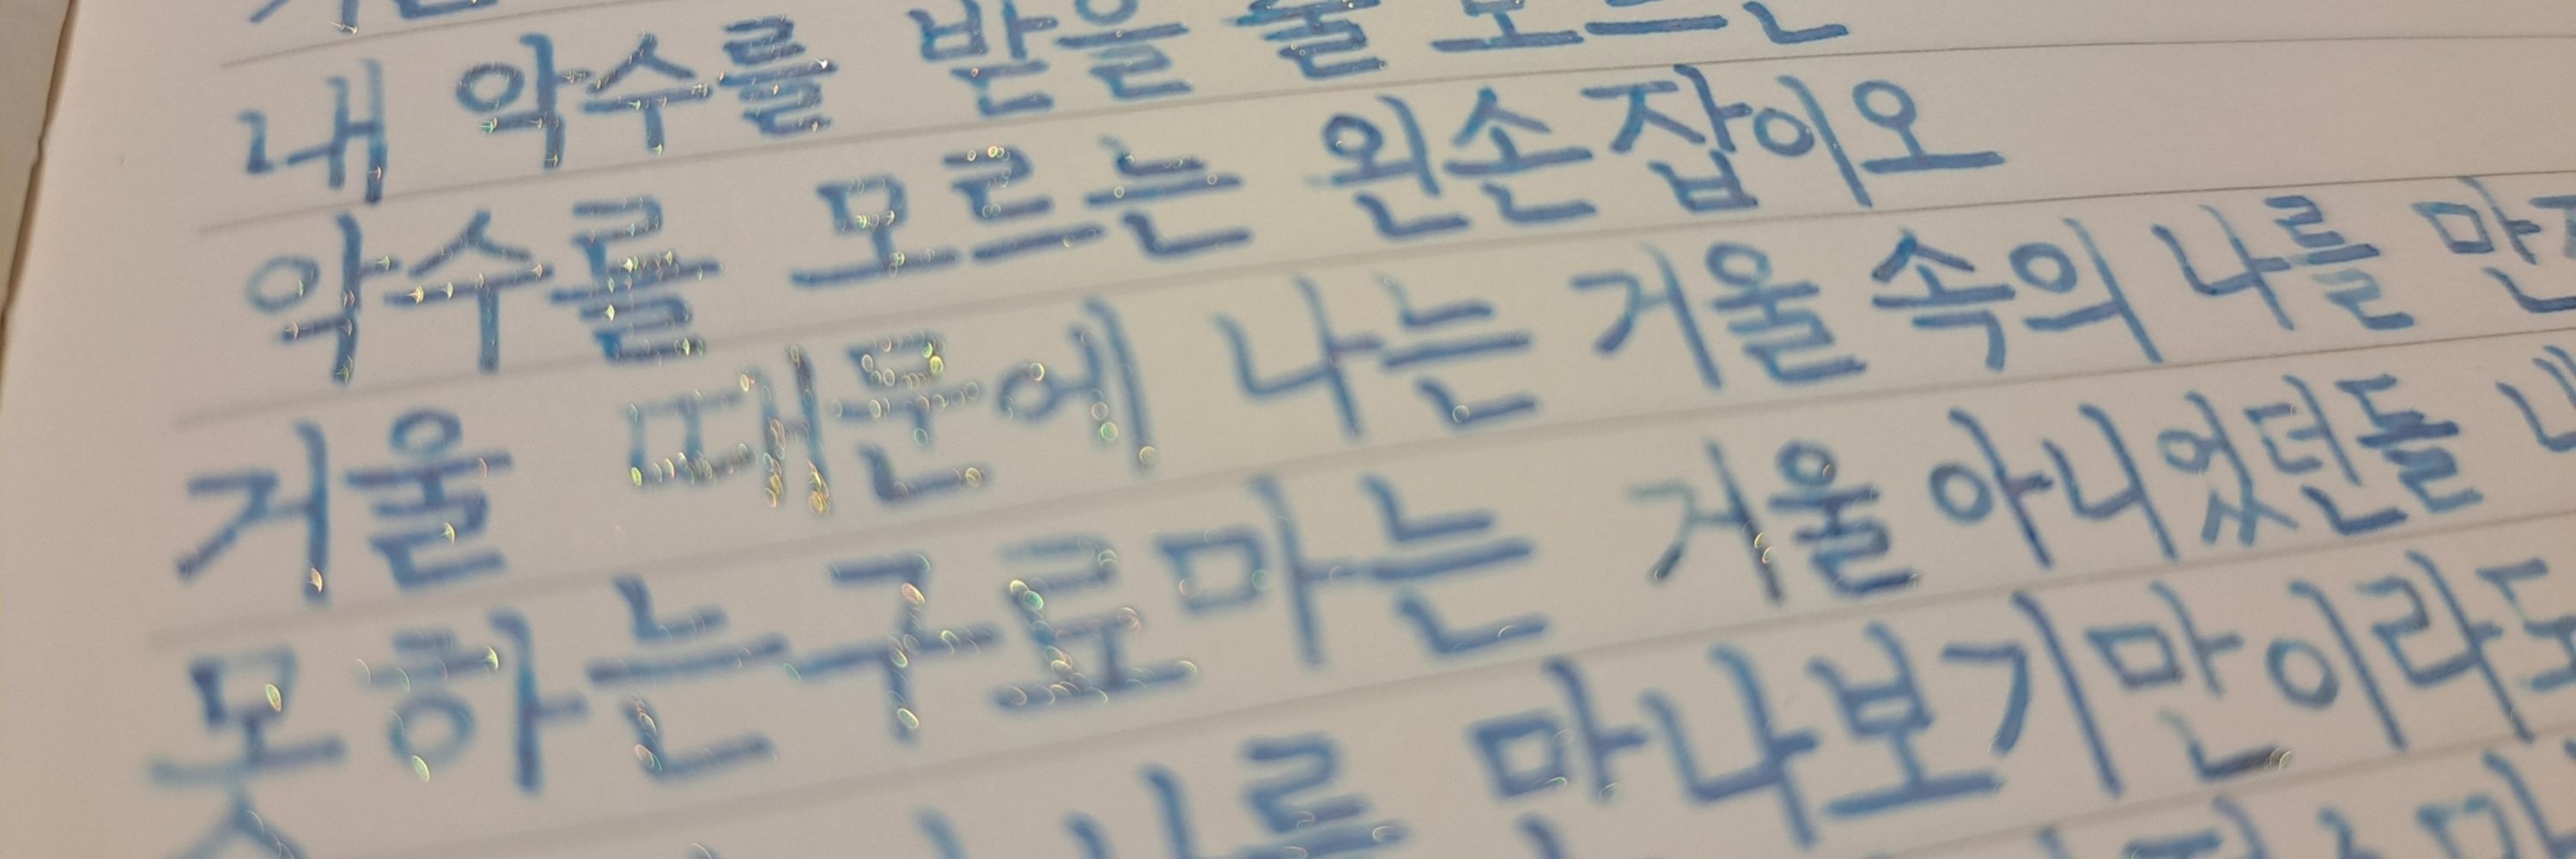 내 악수를 받을 줄 모르는
악수를 모르는 왼손잡이오
거울 때문에 나는 거울 속의 나를 만
못하는구료마는 거울 아니었던들 내
나를 만나보기만이라도